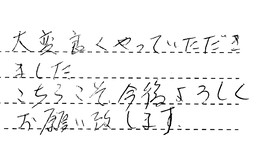 大変良くやっていただき
ました
こちらこそ今後よろしく
お願い致します